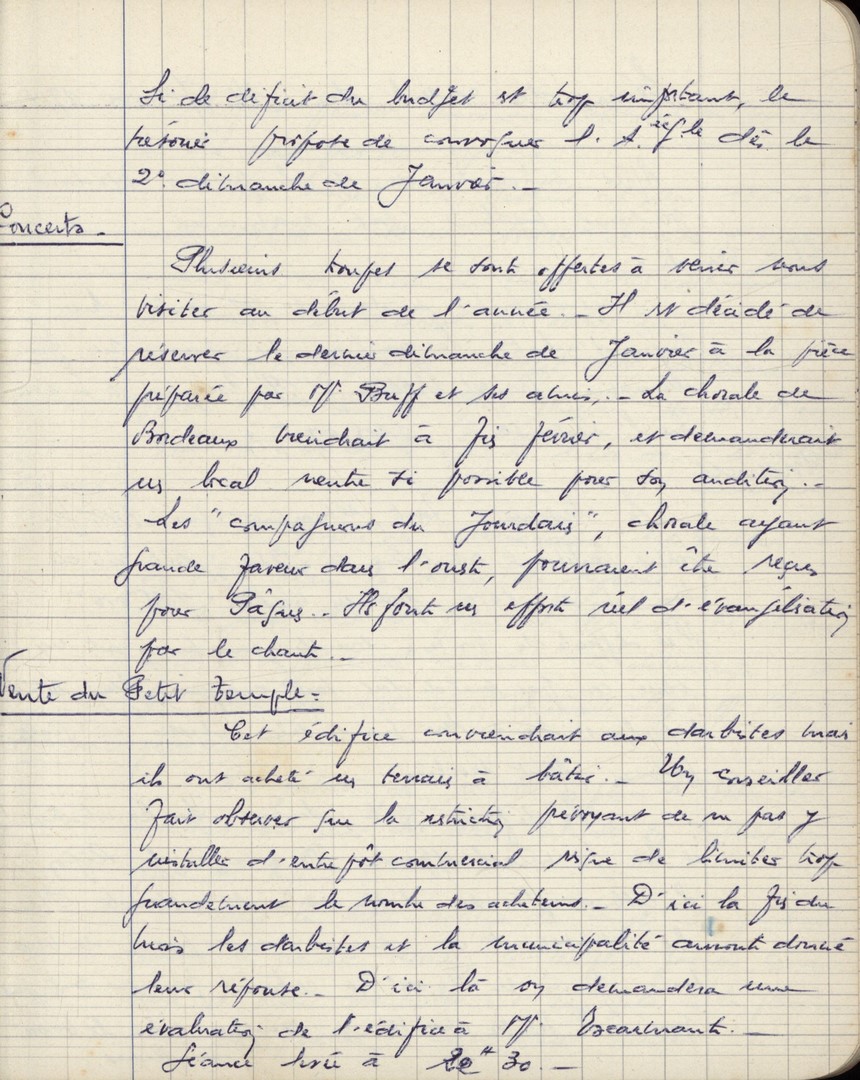 Si le déficit du budget est trop important, le
trésorier propose de convoquer l'A. égle dès le
2e dimanche de Janvier.-
Concerts.-
Plusieurs troupes se sont offertes à venir nous
visiter au début de l'année.- Il est décidé de
réserver le dernier dimanche de Janvier à la pièce
préparée par Mr Buff et ses amis.- La chorale de
Bordeaux viendrait à fin février, et demanderait
un local neutre si possible pour son audition.-
Les "compagnons du Jourdain", chorale ayant
grande faveur dans l'ouest, pourraient être reçus
pour Pâques.- Ils font un effort réel d'évangélisation
par le chant.-
Vente du Petit Temple=
Cet édifice conviendrait aux darbistes mais
ils ont acheté un terrain à bâtir.- Un conseiller
fait observer que la restriction prévoyant de ne pas y
installer d'entrepôt commercial risque de limiter trop
grandement le nombre des acheteurs.- D'ici la fin du
mois les darbistes et la municipalité auront donné
leur réponse.- D'ici là on demandera une
évaluation de l'édifice à Mr
Séance levée à H 30.-